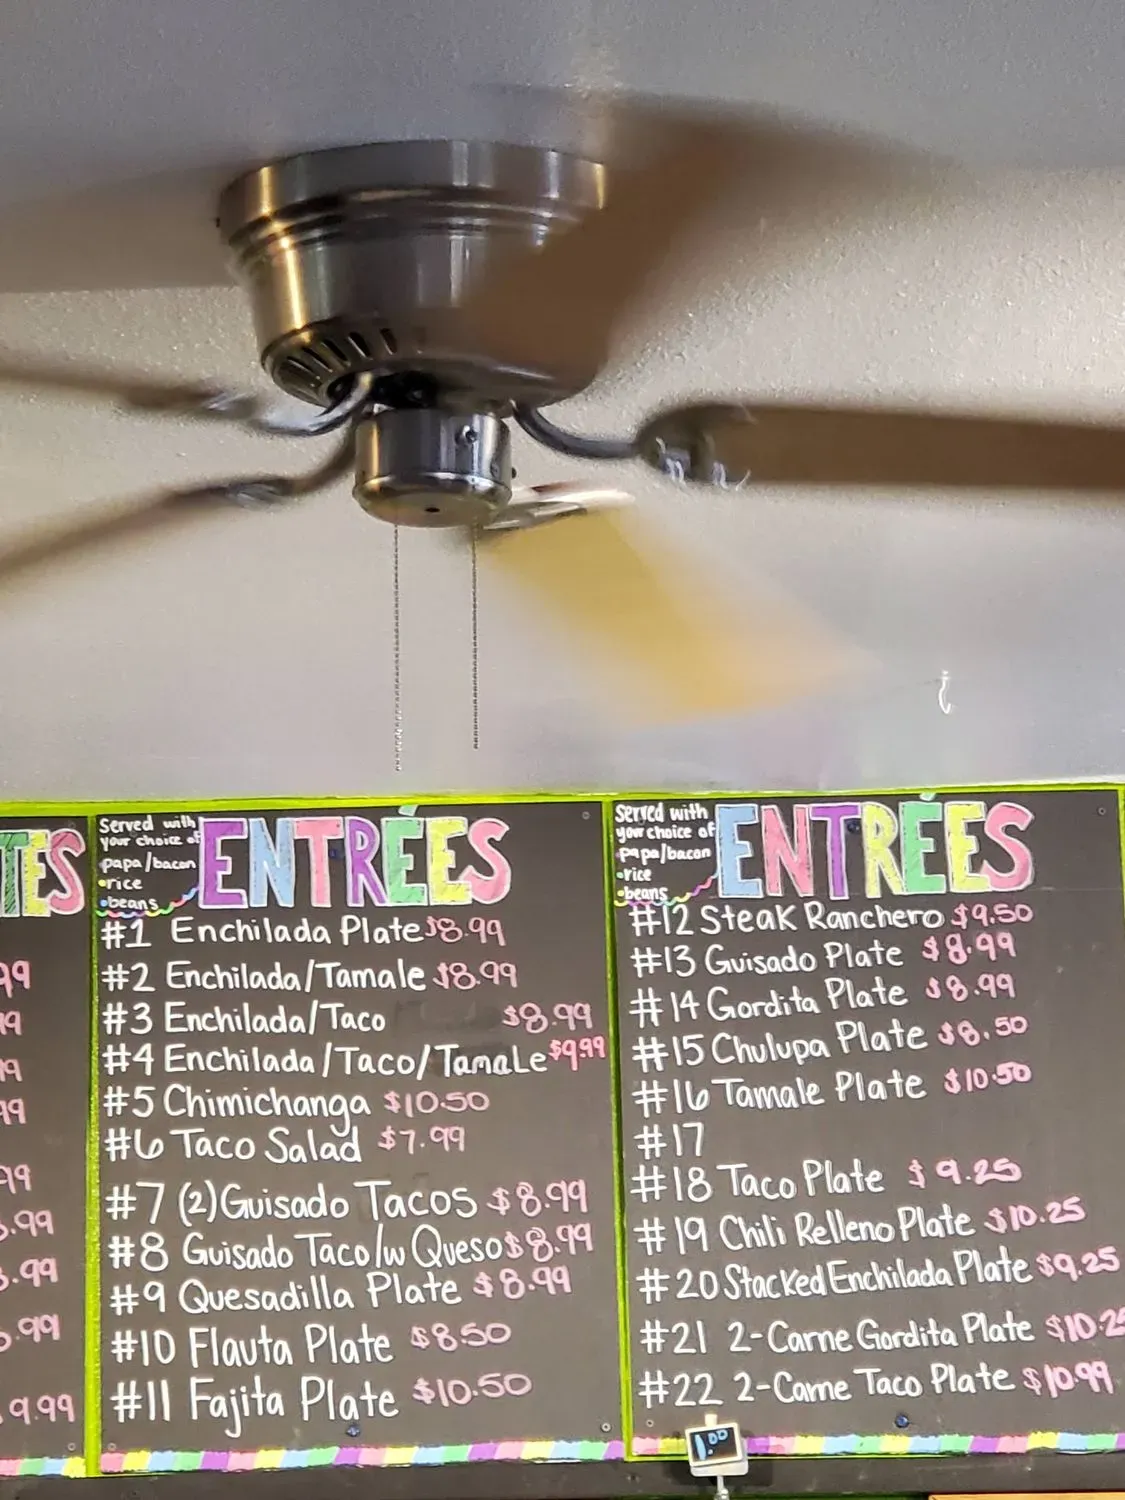 TES
99
99
99
99
.99
.99
.99
9.99
Served with
your choice of
papa/bacon
•rice
•beans
ENTRÉES
#1 Enchilada Plate $8.99
#2 Enchilada/Tamale $8.99
#3 Enchilada/Taco $8.99
#4 Enchilada/Taco/Tamale $9.99
#5 Chimichanga $10.50
#6 Taco Salad $7.99
#7 (2) Guisado Tacos $8.99
#8 Guisado Taco/w Queso $8.99
#9 Quesadilla Plate $8.99
#10 Flauta Plate $8.50
#11 Fajita Plate $10.50
Served with
your choice of
•papa/bacon
•rice
•beans
ENTRÉES
#12 Steak Ranchero $9.50
#13 Guisado Plate $8.99
#14 Gordita Plate $8.99
#15 Chulupa Plate $8.50
#16 Tamale Plate $10.50
#17
#18 Taco Plate $9.25
#19 Chili Relleno Plate $10.25
#20 Stacked Enchilada Plate $9.25
#21 2-Carne Gordita Plate $10.25
#22 2-Carne Taco Plate $10.99
1.00